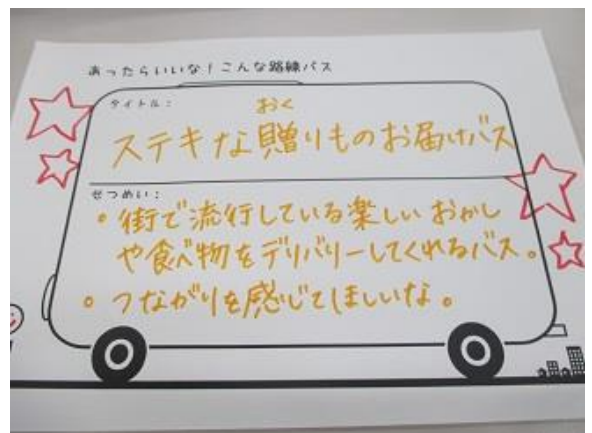 あったらいいな！こんな路線バス
タイトル：
おく
ステキな贈りものお届けバス
せつめい：
・街で流行している楽しいおかし
や食べ物をデリバリーしてくれるバス。
・つながりを感じてほしいな。